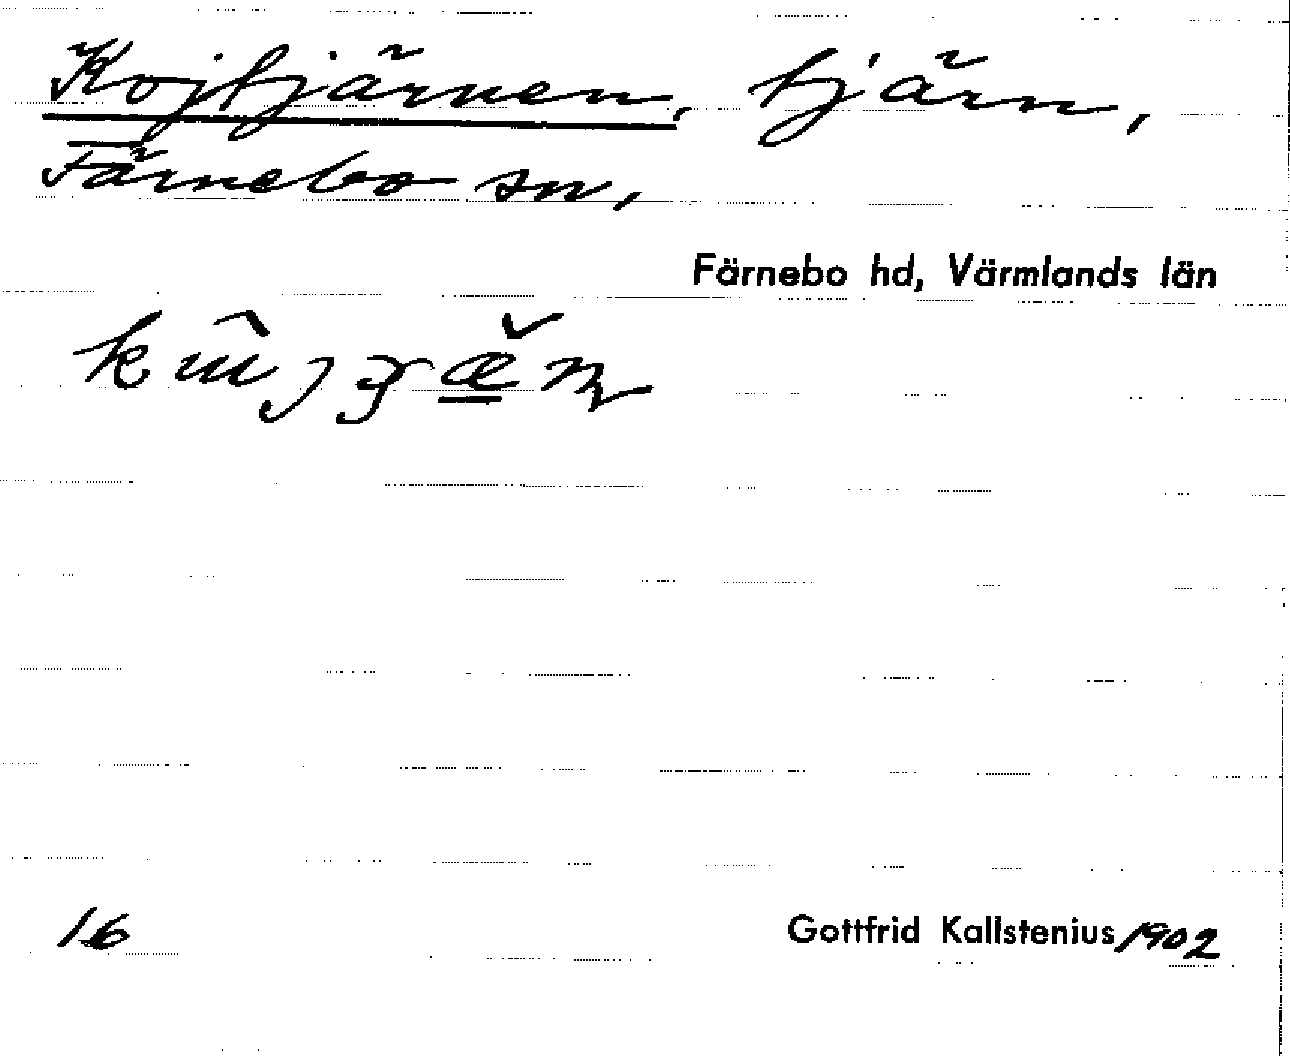 Kojtjärnen, tjärn,
Färnebo sn,
Färnebo hd, Värmlands län
16
Gottfrid Kallstenius 1902